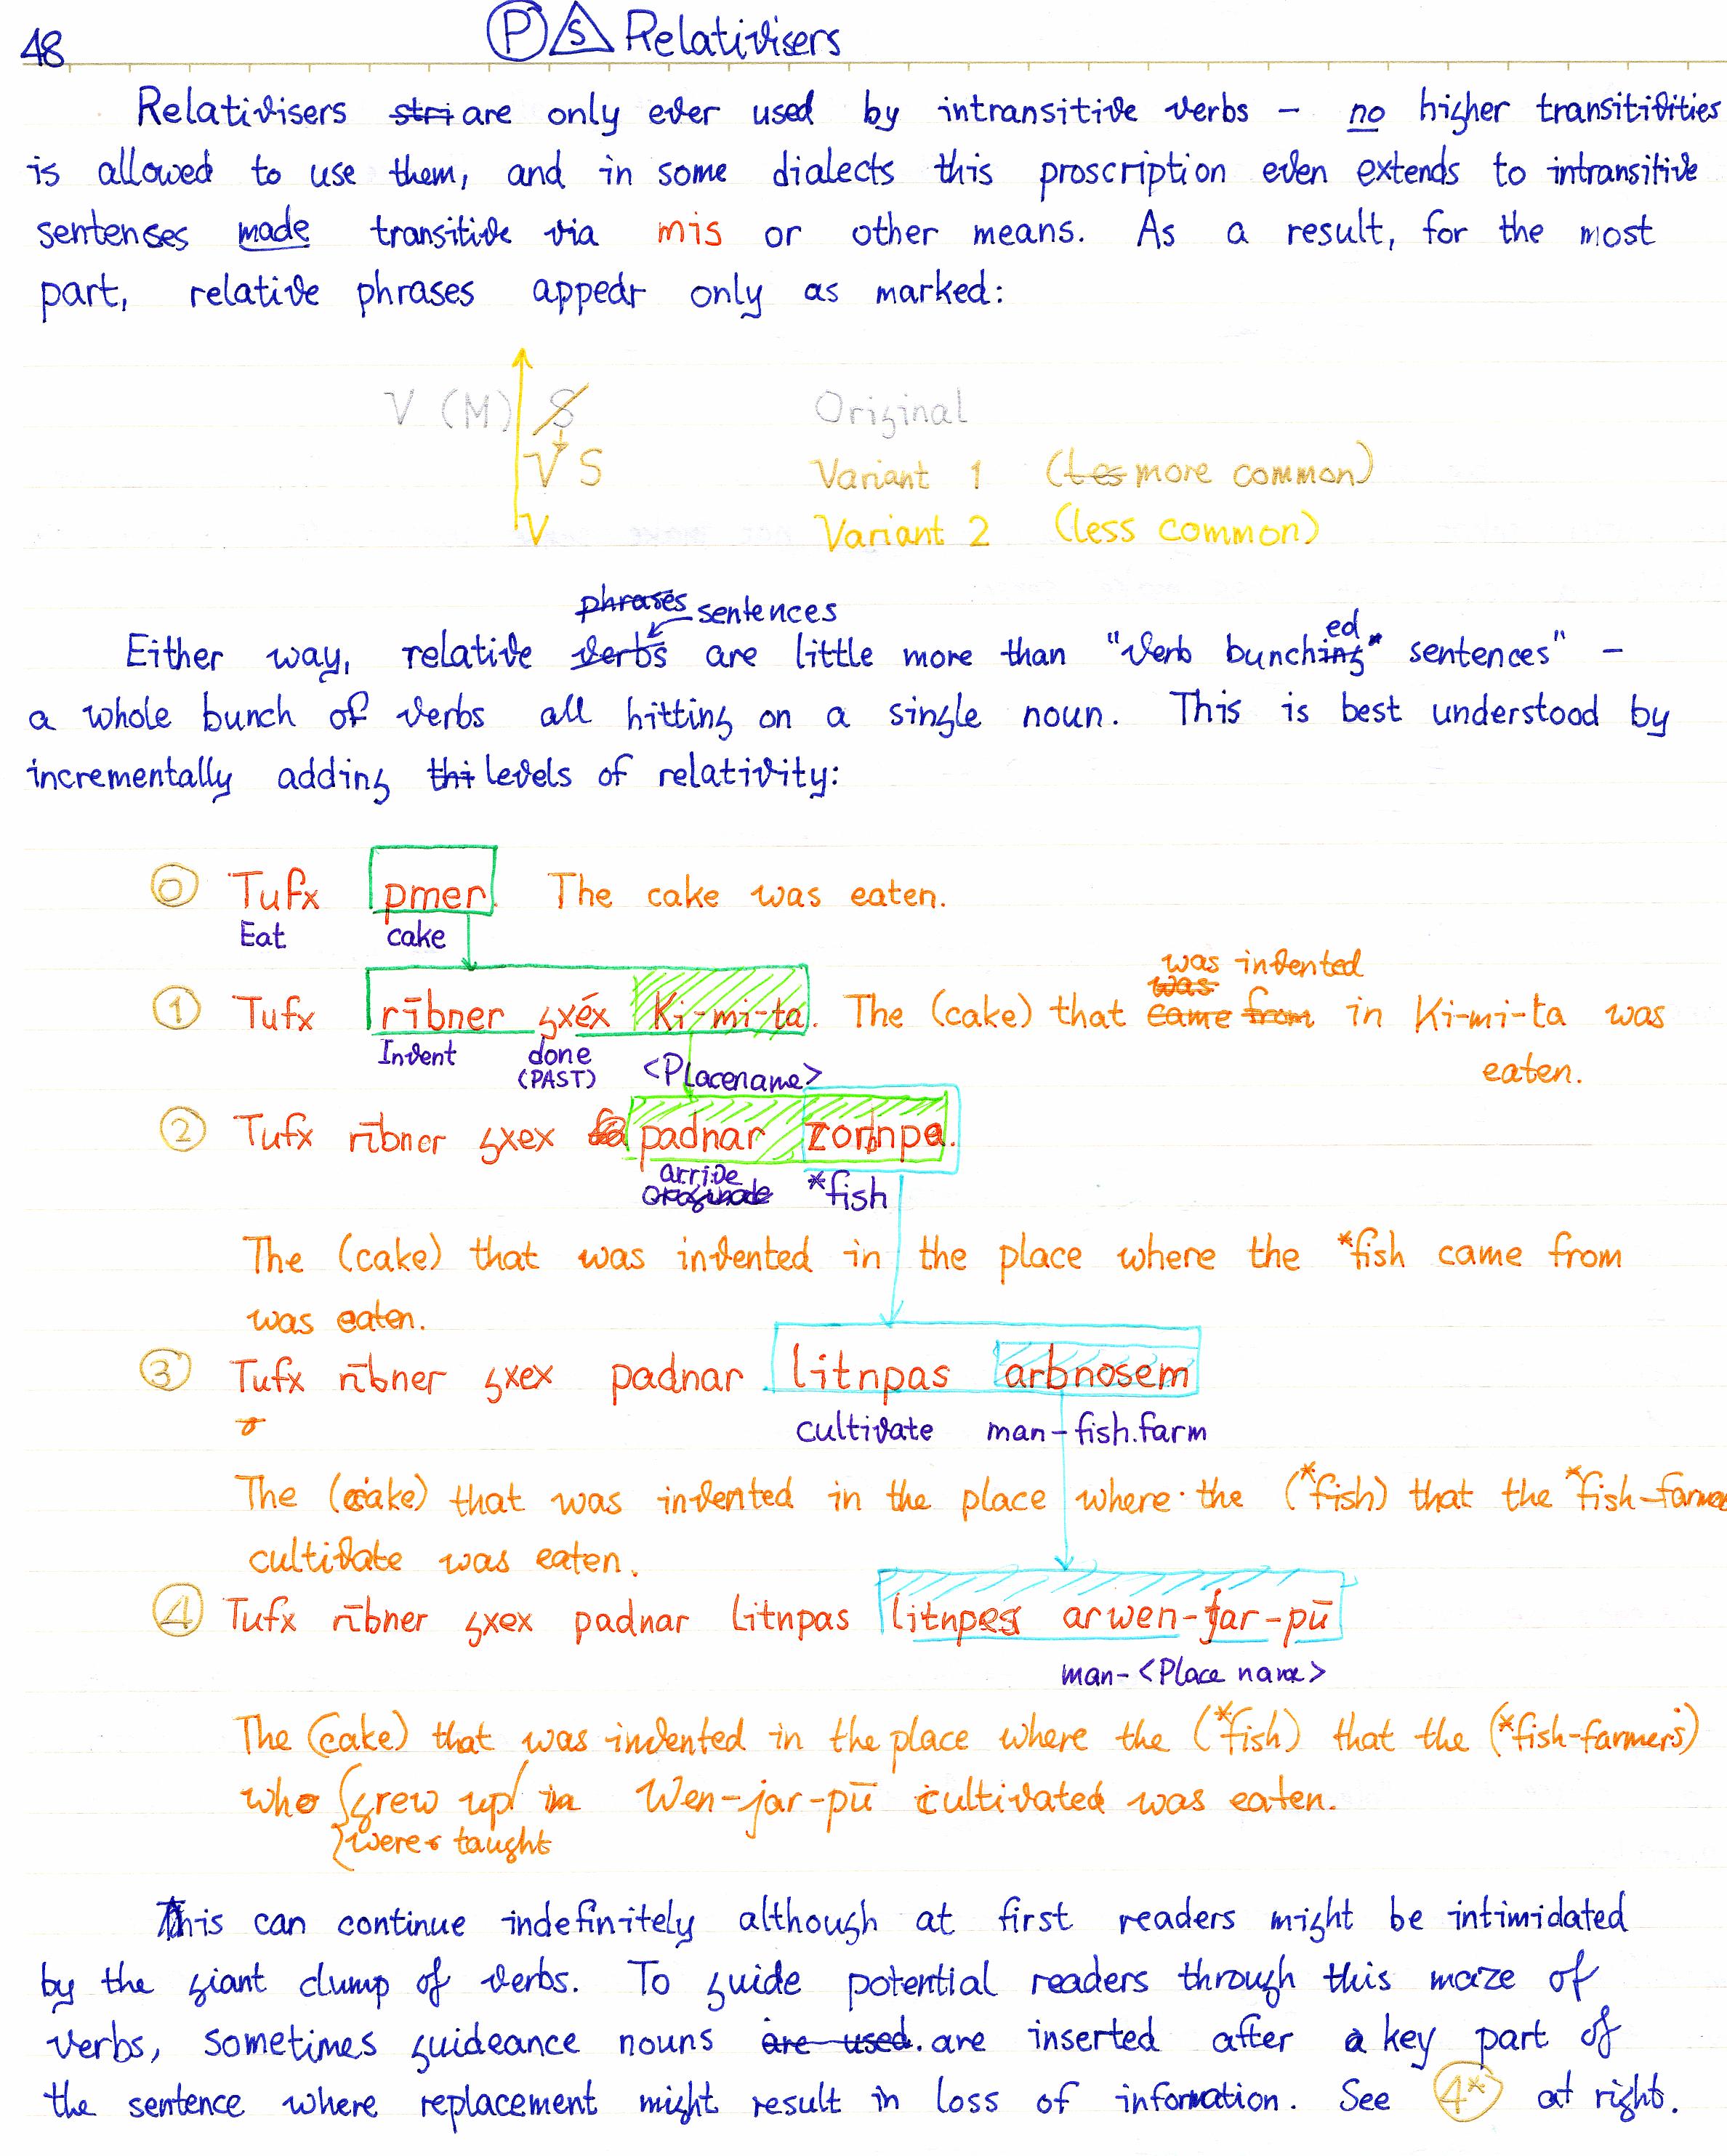 48
P S Relativisers
Relativisers stri are only ever used by intransitive verbs – no higher transitivities
is allowed to use them, and in some dialects this proscription even extends to intransitive
sentenses made transitive via mis or other means. As a result, for the most
part, relative phrases appear only as marked:
V (M) S Original
V S Variant 1 (Les more common)
V Variant 2 (less common)
phrases sentences
Either way, relative verbs are little more than "verb bunching ed" sentences" –
a whole bunch of verbs all hitting on a single noun. This is best understood by
incrementally adding thi levels of relativity:
0 Tufx pmer. The cake was eaten.
Eat cake
was invented
1 Tufx rībner gxéx Ki-mi-ta. The (cake) that was came from in Ki-mi-ta was
Invent done <Placename> eaten.
(PAST)
2 Tufx rībner gxex padnar zornpa.
arrive *fish
The (cake) that was invented in the place where the *fish came from
was eaten.
3 Tufx rībner gxex padnar litnpas arbnosem
cultivate man-fish.farm
The (cake) that was invented in the place where the (*fish) that the *fish-farmer
cultivate was eaten.
4 Tufx rībner gxex padnar litnpas litnpes arwen-jar-pū
man-<Place name>
The (cake) that was invented in the place where the (*fish) that the (*fish-farmers)
who grew up in Wen-jar-pū cultivated was eaten.
were taught
This can continue indefinitely although at first readers might be intimidated
by the giant clump of verbs. To guide potential readers through this maze of
verbs, sometimes guideance nouns are used. are inserted after a key part of
the sentence where replacement might result in loss of information. See 4* at right.